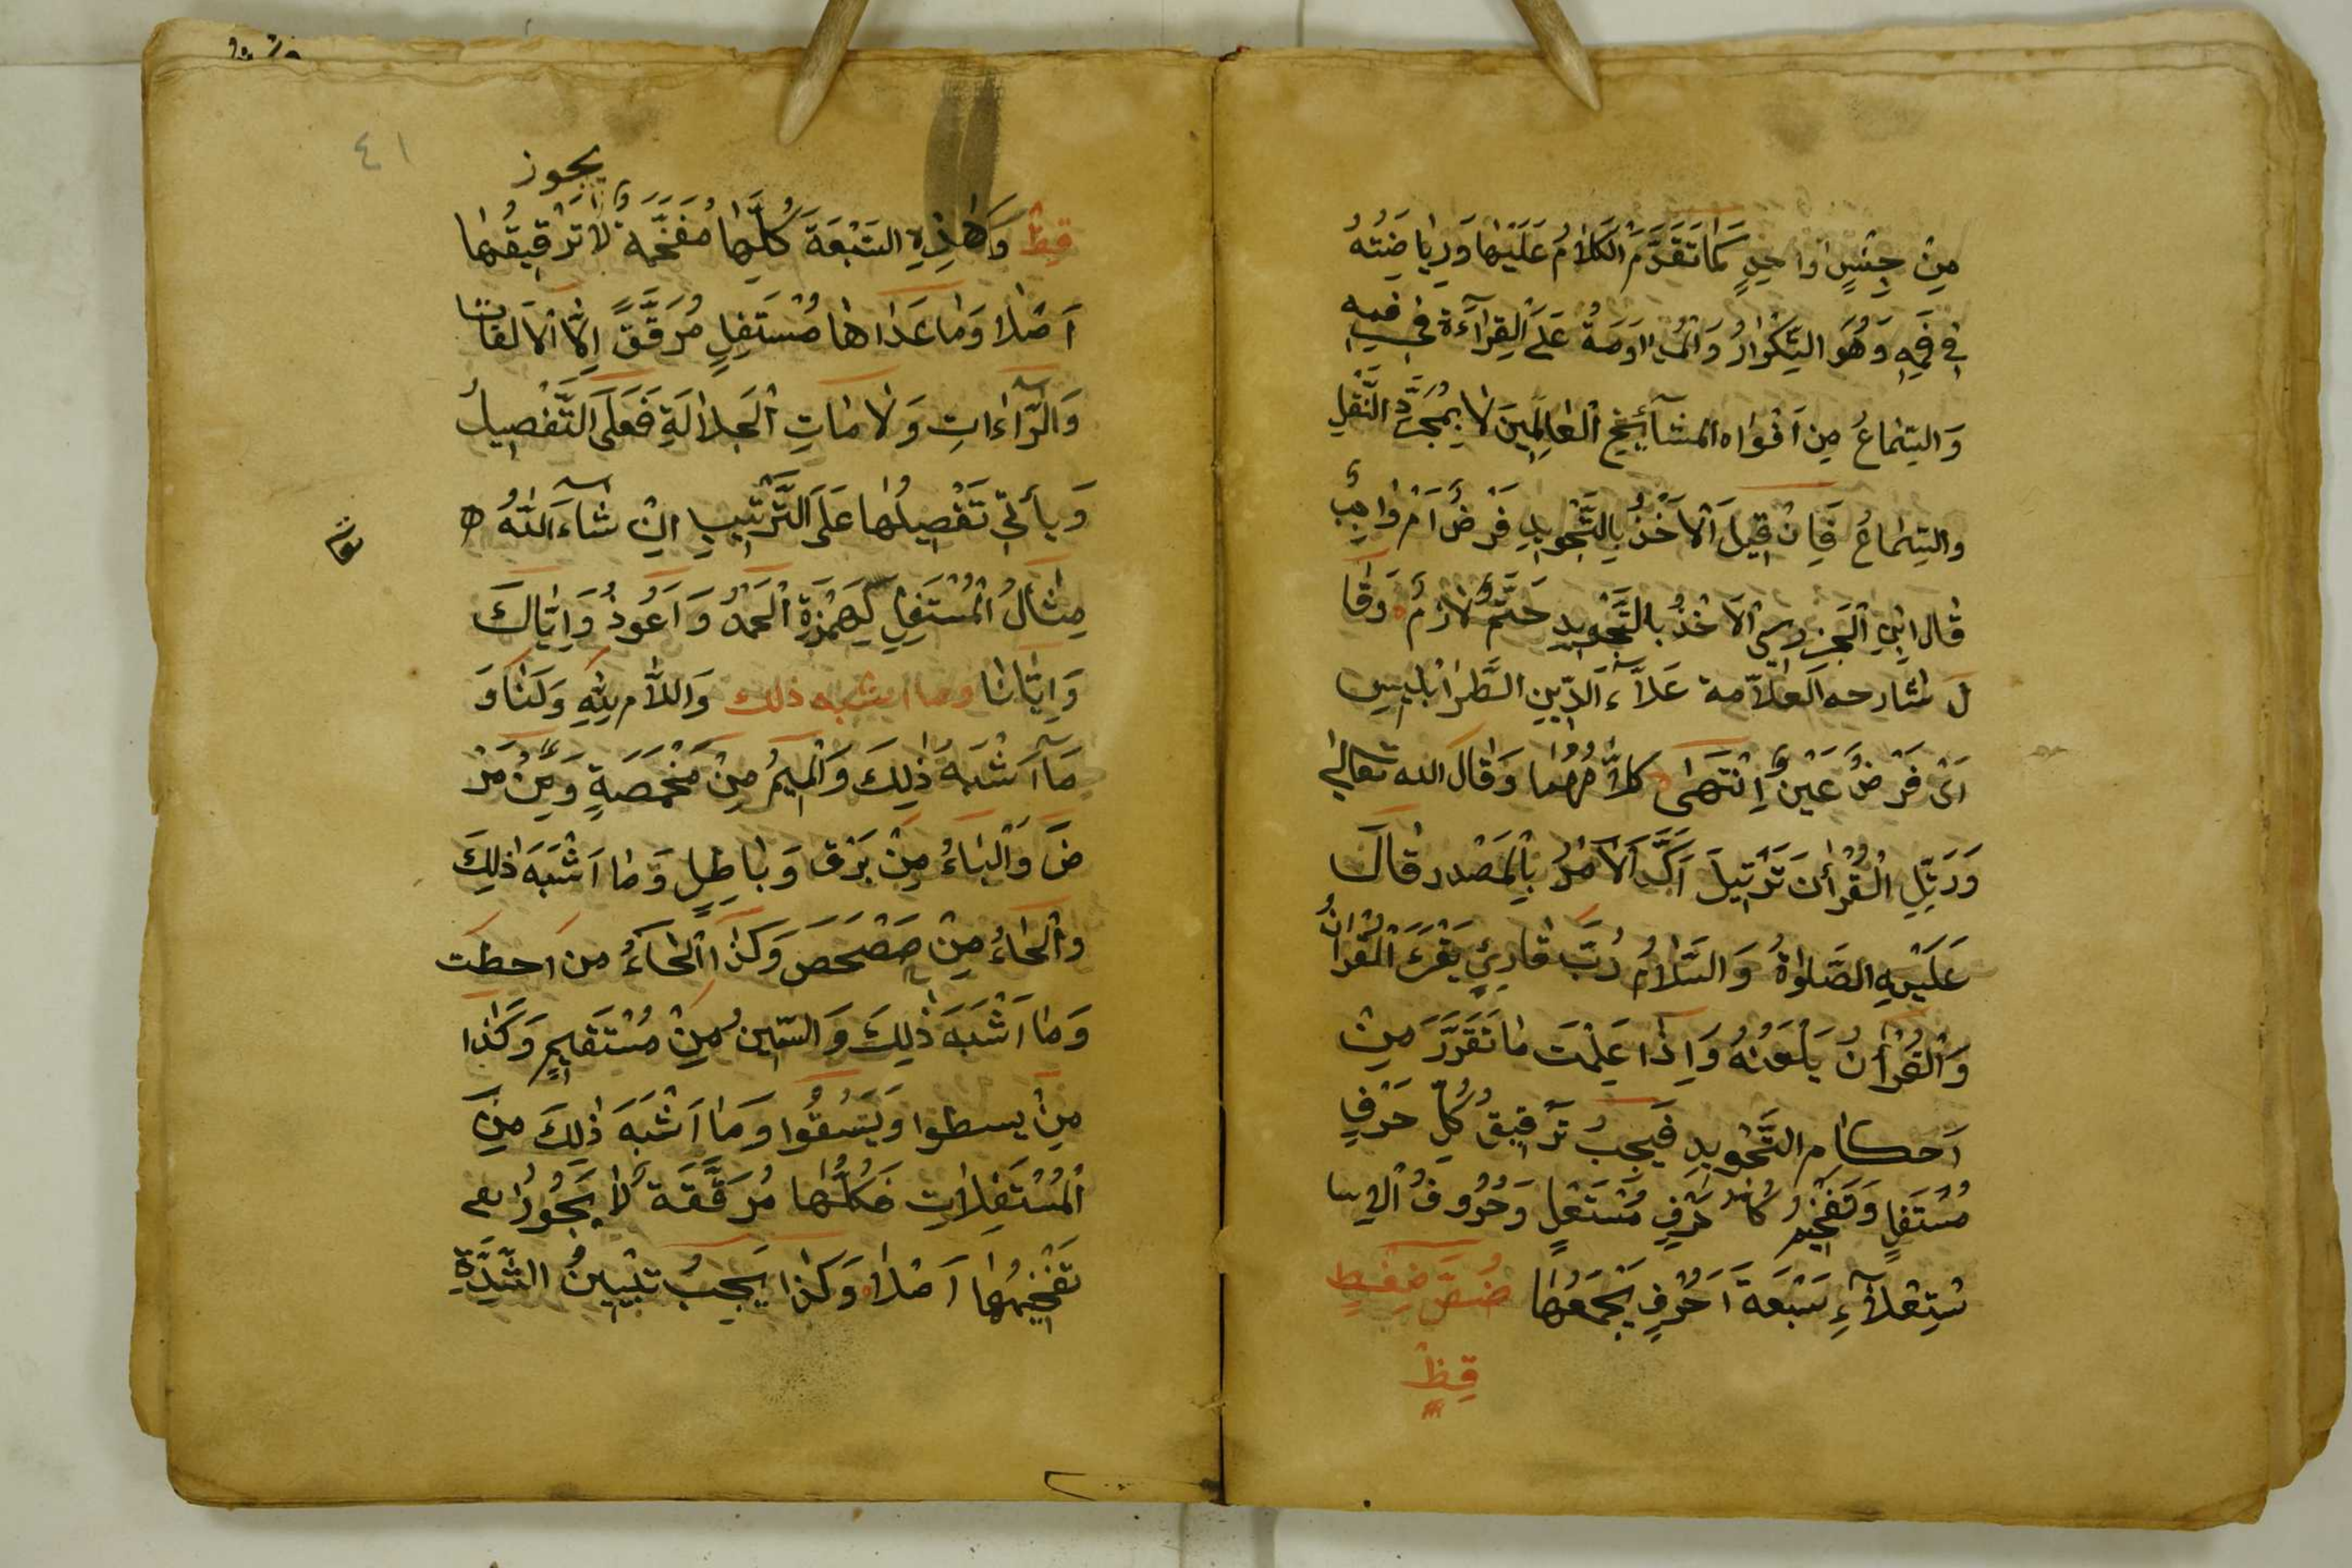 مِنْ جِنْسٍ وَاحِدٍ كَمَا تَقَدَّمَ الْكَلَامُ عَلَيْهَا وَرِيَاضَتُهُ
فِي فَمِهِ وَهُوَ التِّكْرَارُ وَالْمُدَاوَمَةُ عَلَى الْقِرَآءَةِ فِي فَمِهِ
وَالسِّمَاعُ مِنْ اَفْوَاهِ الْمَشَآئِخِ الْعَالِمِينَ لَا بِمُجَرَّدِ النَّقْلِ
والسِّمَاعُ فَاِنْ قِيلَ اَلْاَخْذُ بِالتَّجْوِيدِ فَرْضٌ اَمْ وَاجِبٌ
قَالَ ابْنِ الْجَزَرِي الْاَخْذُ بِالتَّجْوِيدِ حَتْمٌ لَازِمٌ وَقَا
لَ شَارحه الْعَلَّامة عَلَآءَ الدِّينِ الطَّرَابُلْسِي
اَىْ فَرْضُ عَيْنٍ اِنْتَهَى كَلَامُهُمَا وَقَالَ الله تعالى
وَرَتِّلِ الْقُرْأٰنَ تَرْتِيلَ اَكَّدَ الْاَمْرَ بِالْمَصْدر قَالَ
عَلَيْهِ الصَّلٰوةُ وَالسَّلَامُ رُبَّ قَارِئٍ يَقْرَءُ الْقُرْاٰنُ
وَالْقُرْأٰنُ يَلْعَنُهُ وَاِذَا عَلِمْتَ مَا تَقَرَّرَ مِنْ
اَحكَامِ التَّجْوِيدِ فَيَجِبُ تَرْقِيقُ كُلِّ حَرْفٍ
مُسْتَفِلٍ وَتَفْخِيمُ كُلِّ حَرْفٍ مُسْتَعْلٍ وَحُرُوفُ الْاِ
سْتِعْلَآءِ سَبْعَةَ اَحْرُفٍ يَجْمَعُهَا خُصَّ ضَغْطٍ
قِظْ
يجوز
قِظْ وَهٰذِهِ السَّبْعَةَ كُلُّهَا مُفَخَّمَةٌ لَا تَرْقِيقُهَا
اَصْلًا وَمَا عَدَاهَا مُسْتَفِلٍ مُرَقَّقً اِلَّا الْاَلفات
وَالرَّآءَاتِ وَلَامَاتِ الْجَلَالَةِ فَعَلَى التَّفْصِيلُ
وَيَأتِي تَفْصِيلُهَا عَلَى التَّرْتِيبِ اِنْ شَاءَ اللّٰهُ
مِثَالُ الْمُسْتَفِلِ كَهَمْزَةِ اَلْحَمْدُ وَاَعُوذُ وَاِيَّاكَ
وَاِيَّانَا وما اشبه ذلك وَاللَّام لِلّٰهِ وَلَنَا وَ
مَآ اَشْبَهَ ذٰلِكَ وَالْمِيمُ مِنْ مَخْمَصَةٍ وَمِنْ مَرَ
ضَ وَالْبَاءُ مِنْ بَرْق وَبَاطِلٍ وَمَا اَشْبَهَ ذٰلِكَ
وَالْحَاءُ مِنْ حَصْحَصَ وَكَذَا الْحَاءُ من احطت
وَمَا اَشْبَهَ ذٰلِكَ وَالسِّين مِنْ مُسْتَقِيمٍ وَكَذَا
مِنْ يسطوا وَيَسْقُوا وَمَا اَشْبَهَ ذٰلِكَ مِنَ
الْمُسْتَفِلَاتِ فَكُلُّهَا مُرَقَّقَة لَا يَجُوزُ
تَفْخِيمُهَا اَصْلًا وَكَذَا يَجِبُ تَبْيِينُ الشِّدَّةِ
٤١